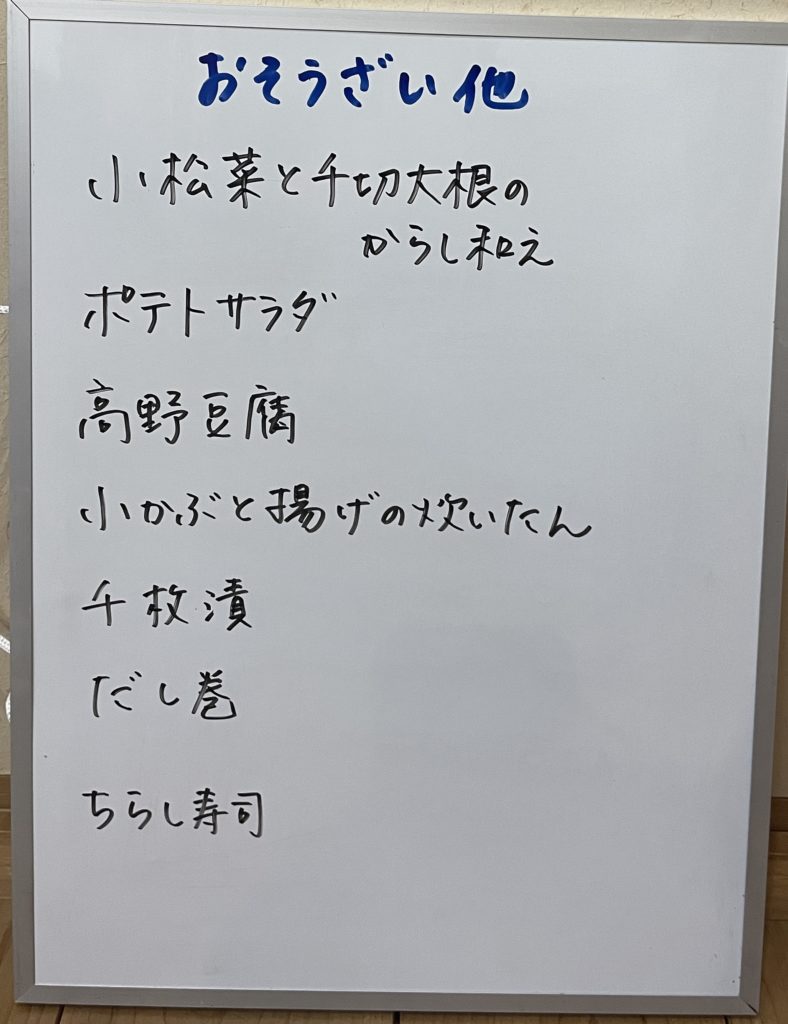 おそうざい他
小松菜と千切大根の
からし和え
ポテトサラダ
高野豆腐
小かぶと揚げの炊いたん
千枚漬
だし巻
ちらし寿司